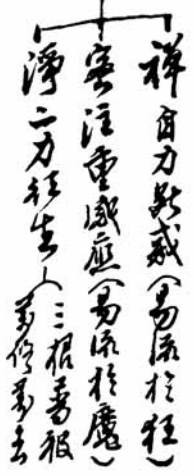 禪自力斷惑（易流於狂）
密注重感應（易流於魔）
淨二力往生（三根普被
萬修萬去